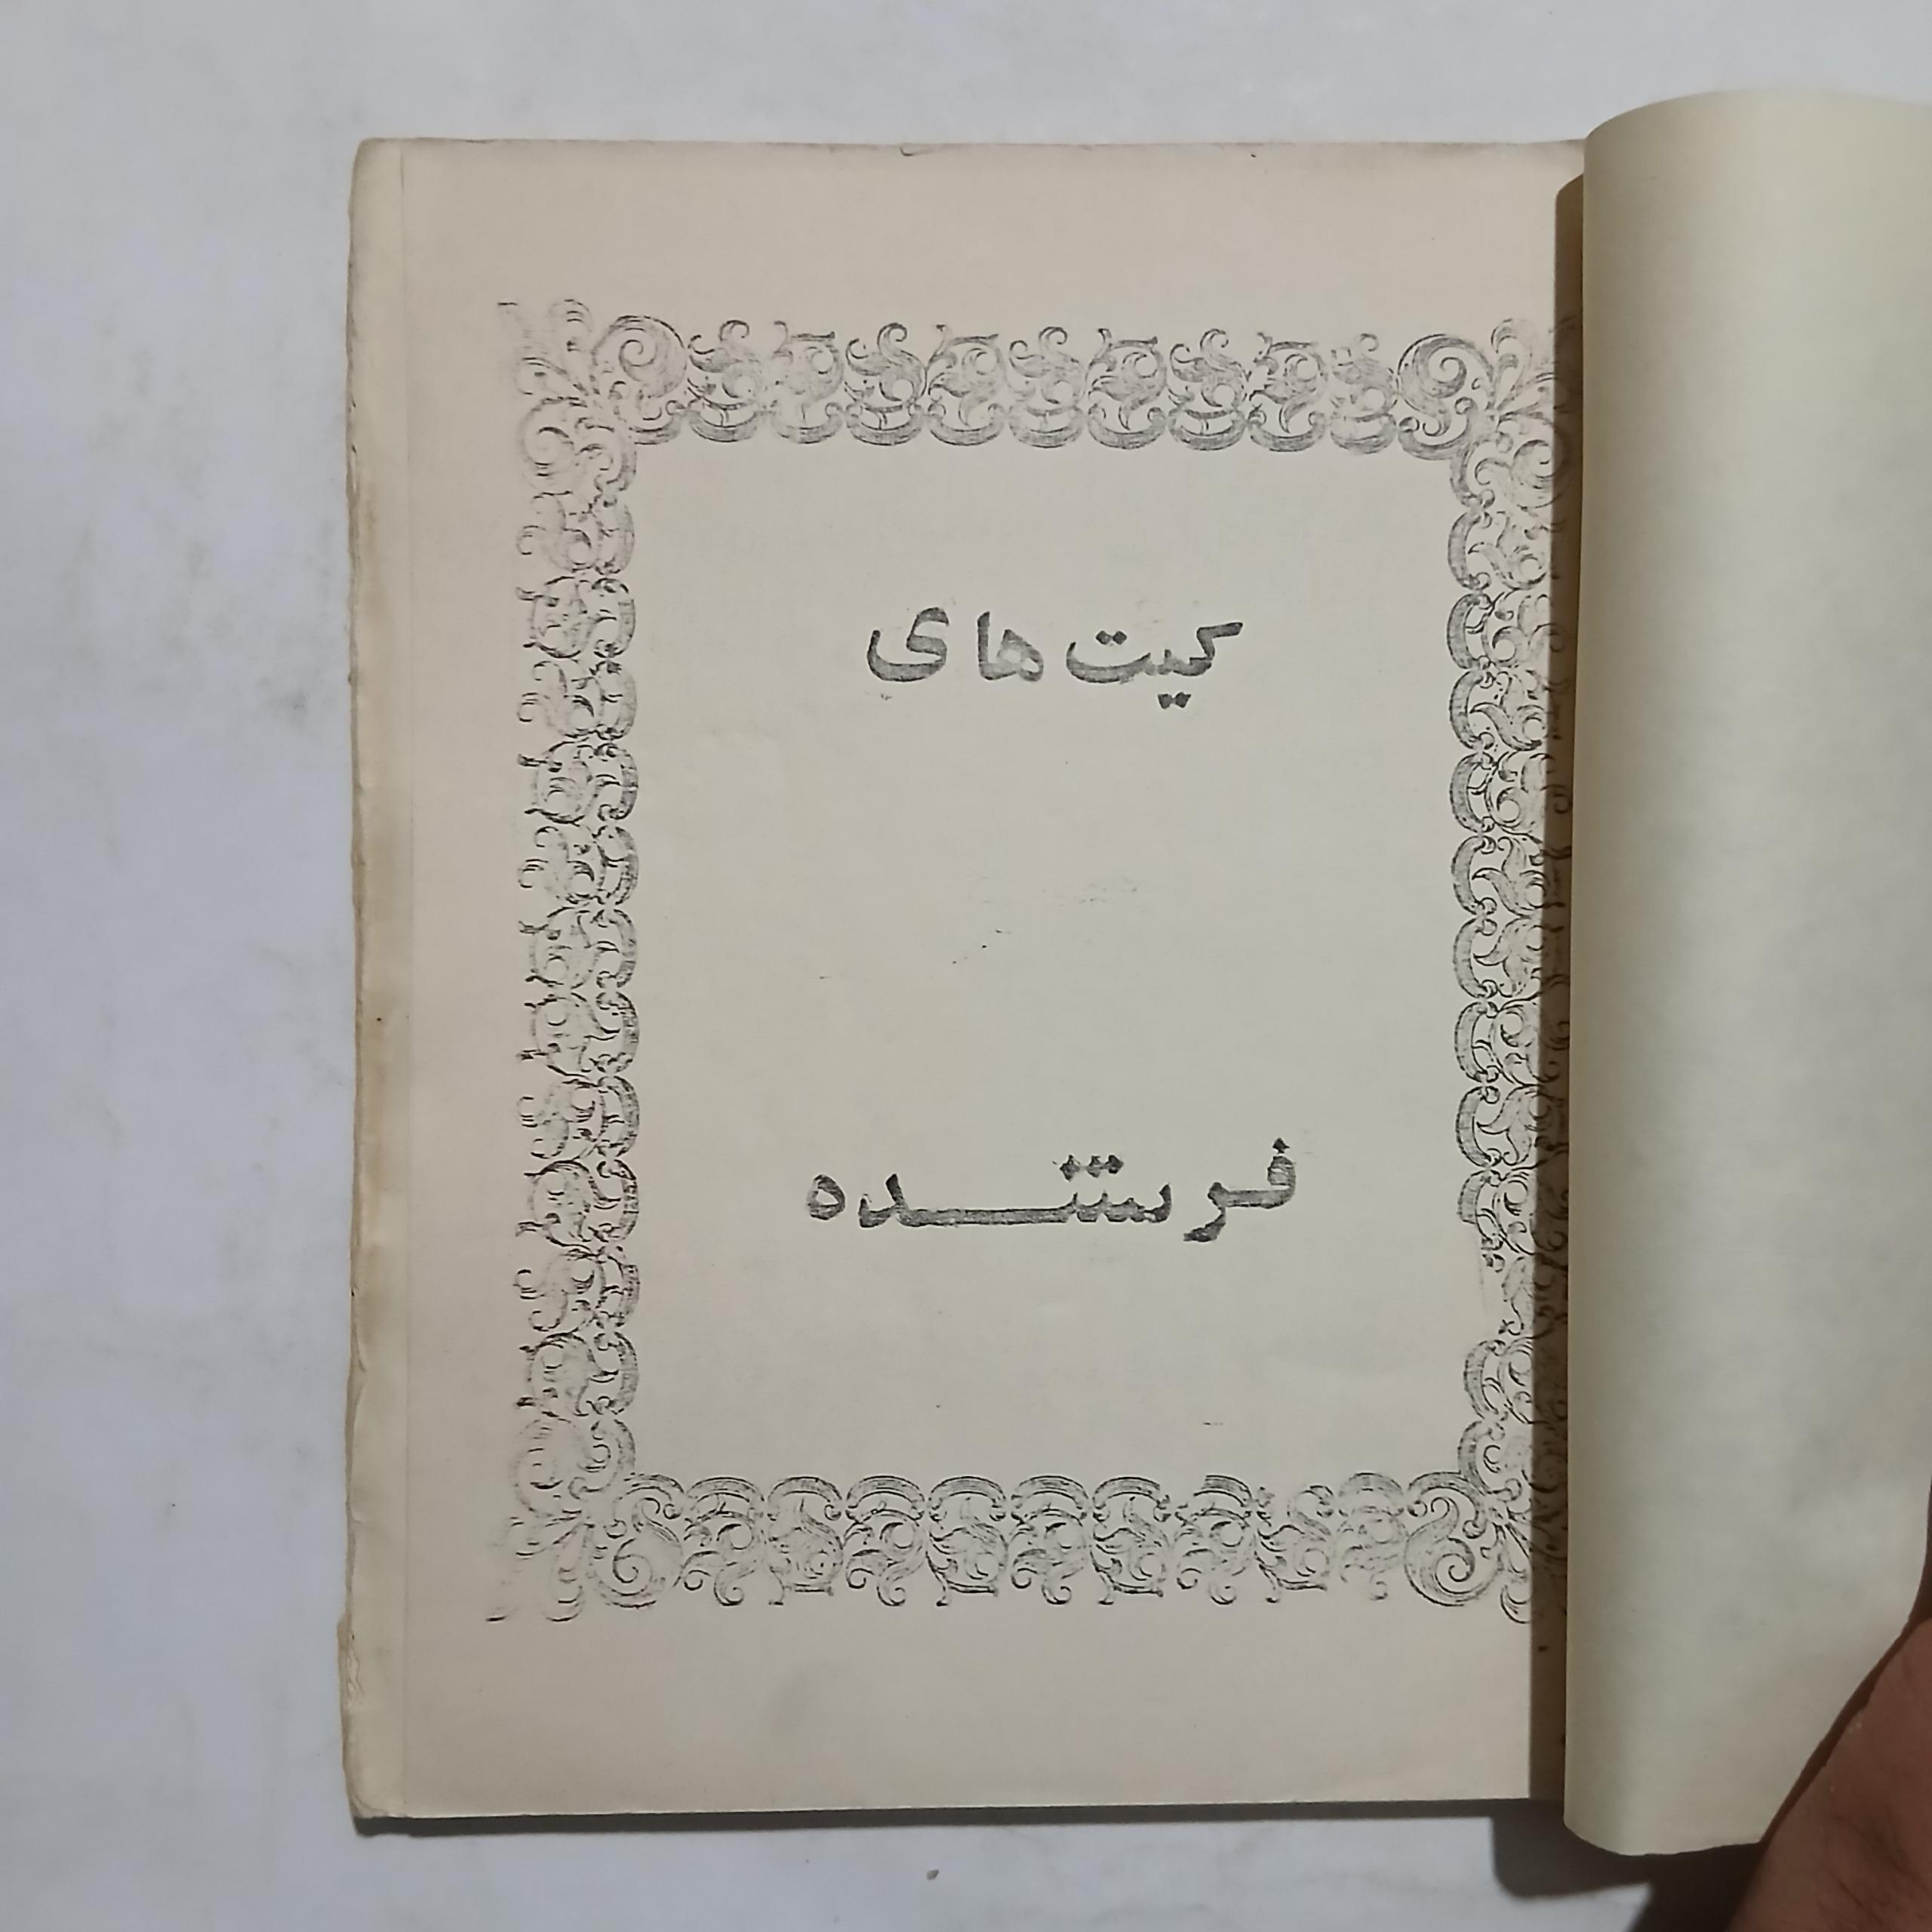 کیت های
فرستنده